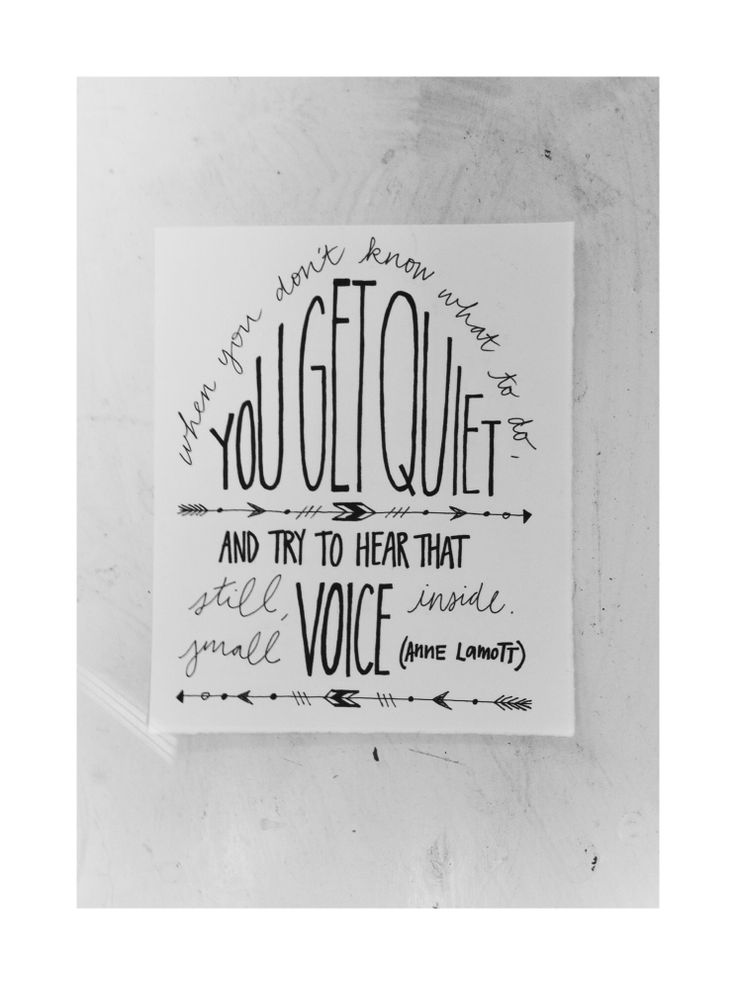 when you don't know what to do,
YOU GET QUIET
AND TRY TO HEAR THAT
still,
small VOICE inside.
(Anne Lamott)